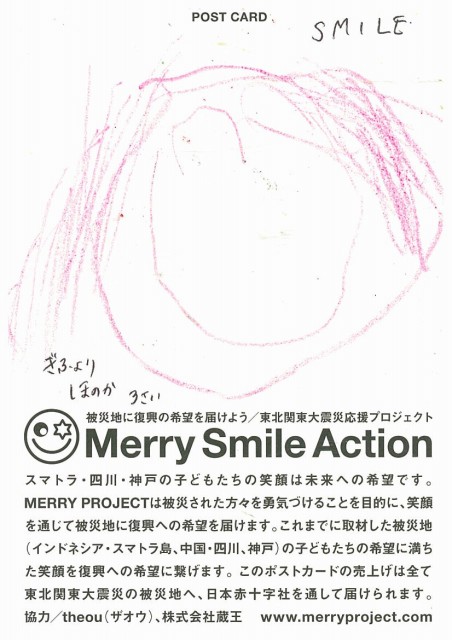 POST CARD
SMILE
ぎふより
ほのか 3さい
被災地に復興の希望を届けよう／東北関東大震災応援プロジェクト
Merry Smile Action
スマトラ・四川・神戸の子どもたちの笑顔は未来への希望です。
MERRY PROJECTは被災された方々を勇気づけることを目的に、笑顔
を通じて被災地に復興への希望を届けます。これまでに取材した被災地
（インドネシア・スマトラ島、中国・四川、神戸）の子どもたちの希望に満ち
た笑顔を復興への希望に繋げます。このポストカードの売上げは全て
東北関東大震災の被災地へ、日本赤十字社を通して届けられます。
協力／theou（ザオウ）、株式会社蔵王 www.merryproject.com